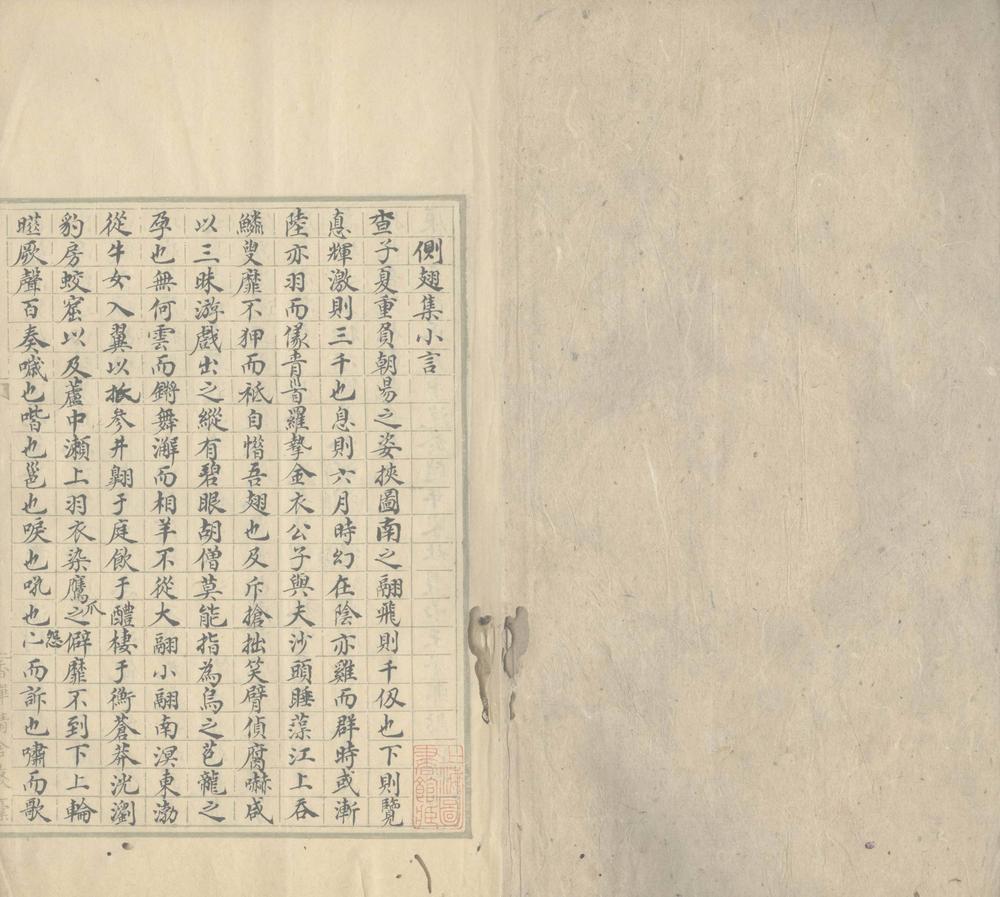 側翅集小言
查子夏重負朝昜之姿挾圖南之翮飛則千仭也下則覽
悳輝激則三千也息則六月時幻在陰亦雞而群時或漸
陸亦羽而儀青訾羅摯金衣公子與夫沙頭睡藻江上吞
鱗叟靡不狎而祗自憯吾翅也及斥搶拙笑臂偵腐嚇咸
以三昧游戲出之縱有碧眼胡僧莫能指為烏之芑龍之
孕也無何雲而鏘舞澥而相羊不從大翮小翮南溟東渤
從牛女入翼以抵參井翺于庭飲于醴棲于衡蒼莽沈瀏
豹房蛟窟以及蘆中瀬上羽衣染鷹爪之僻靡不到下上輪
厥聲百奏噦也喈也邕也唳也吼也怨而訴也嘯而歌
上海圖書館藏